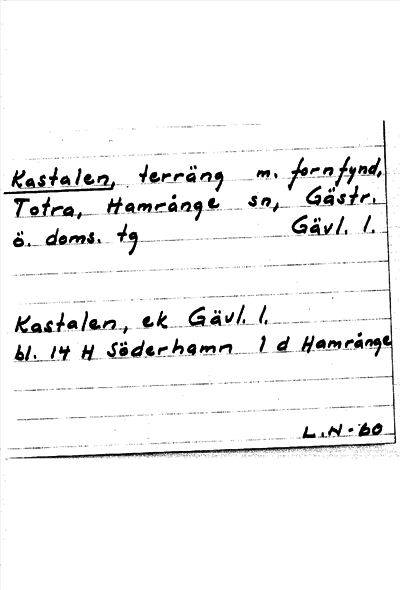 Kastalen, terräng m. fornfynd,
Totra, Hamrånge sn, Gästr.
ö. doms. tg Gävl. l.
Kastalen, ek Gävl. l.
bl. 14 H Söderhamn 1 d Hamrånge
L.N-60